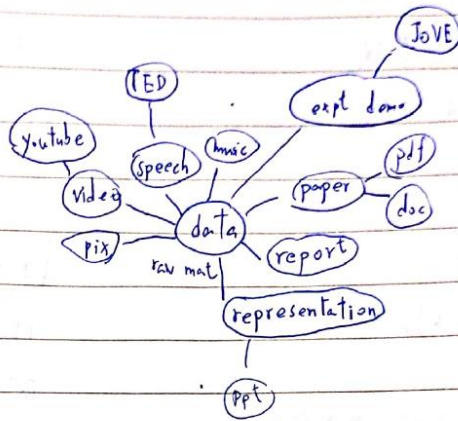 JoVE
TED
expt demo
youtube
speech
music
pdf
video
paper
doc
data
pix
report
raw mat
representation
ppt